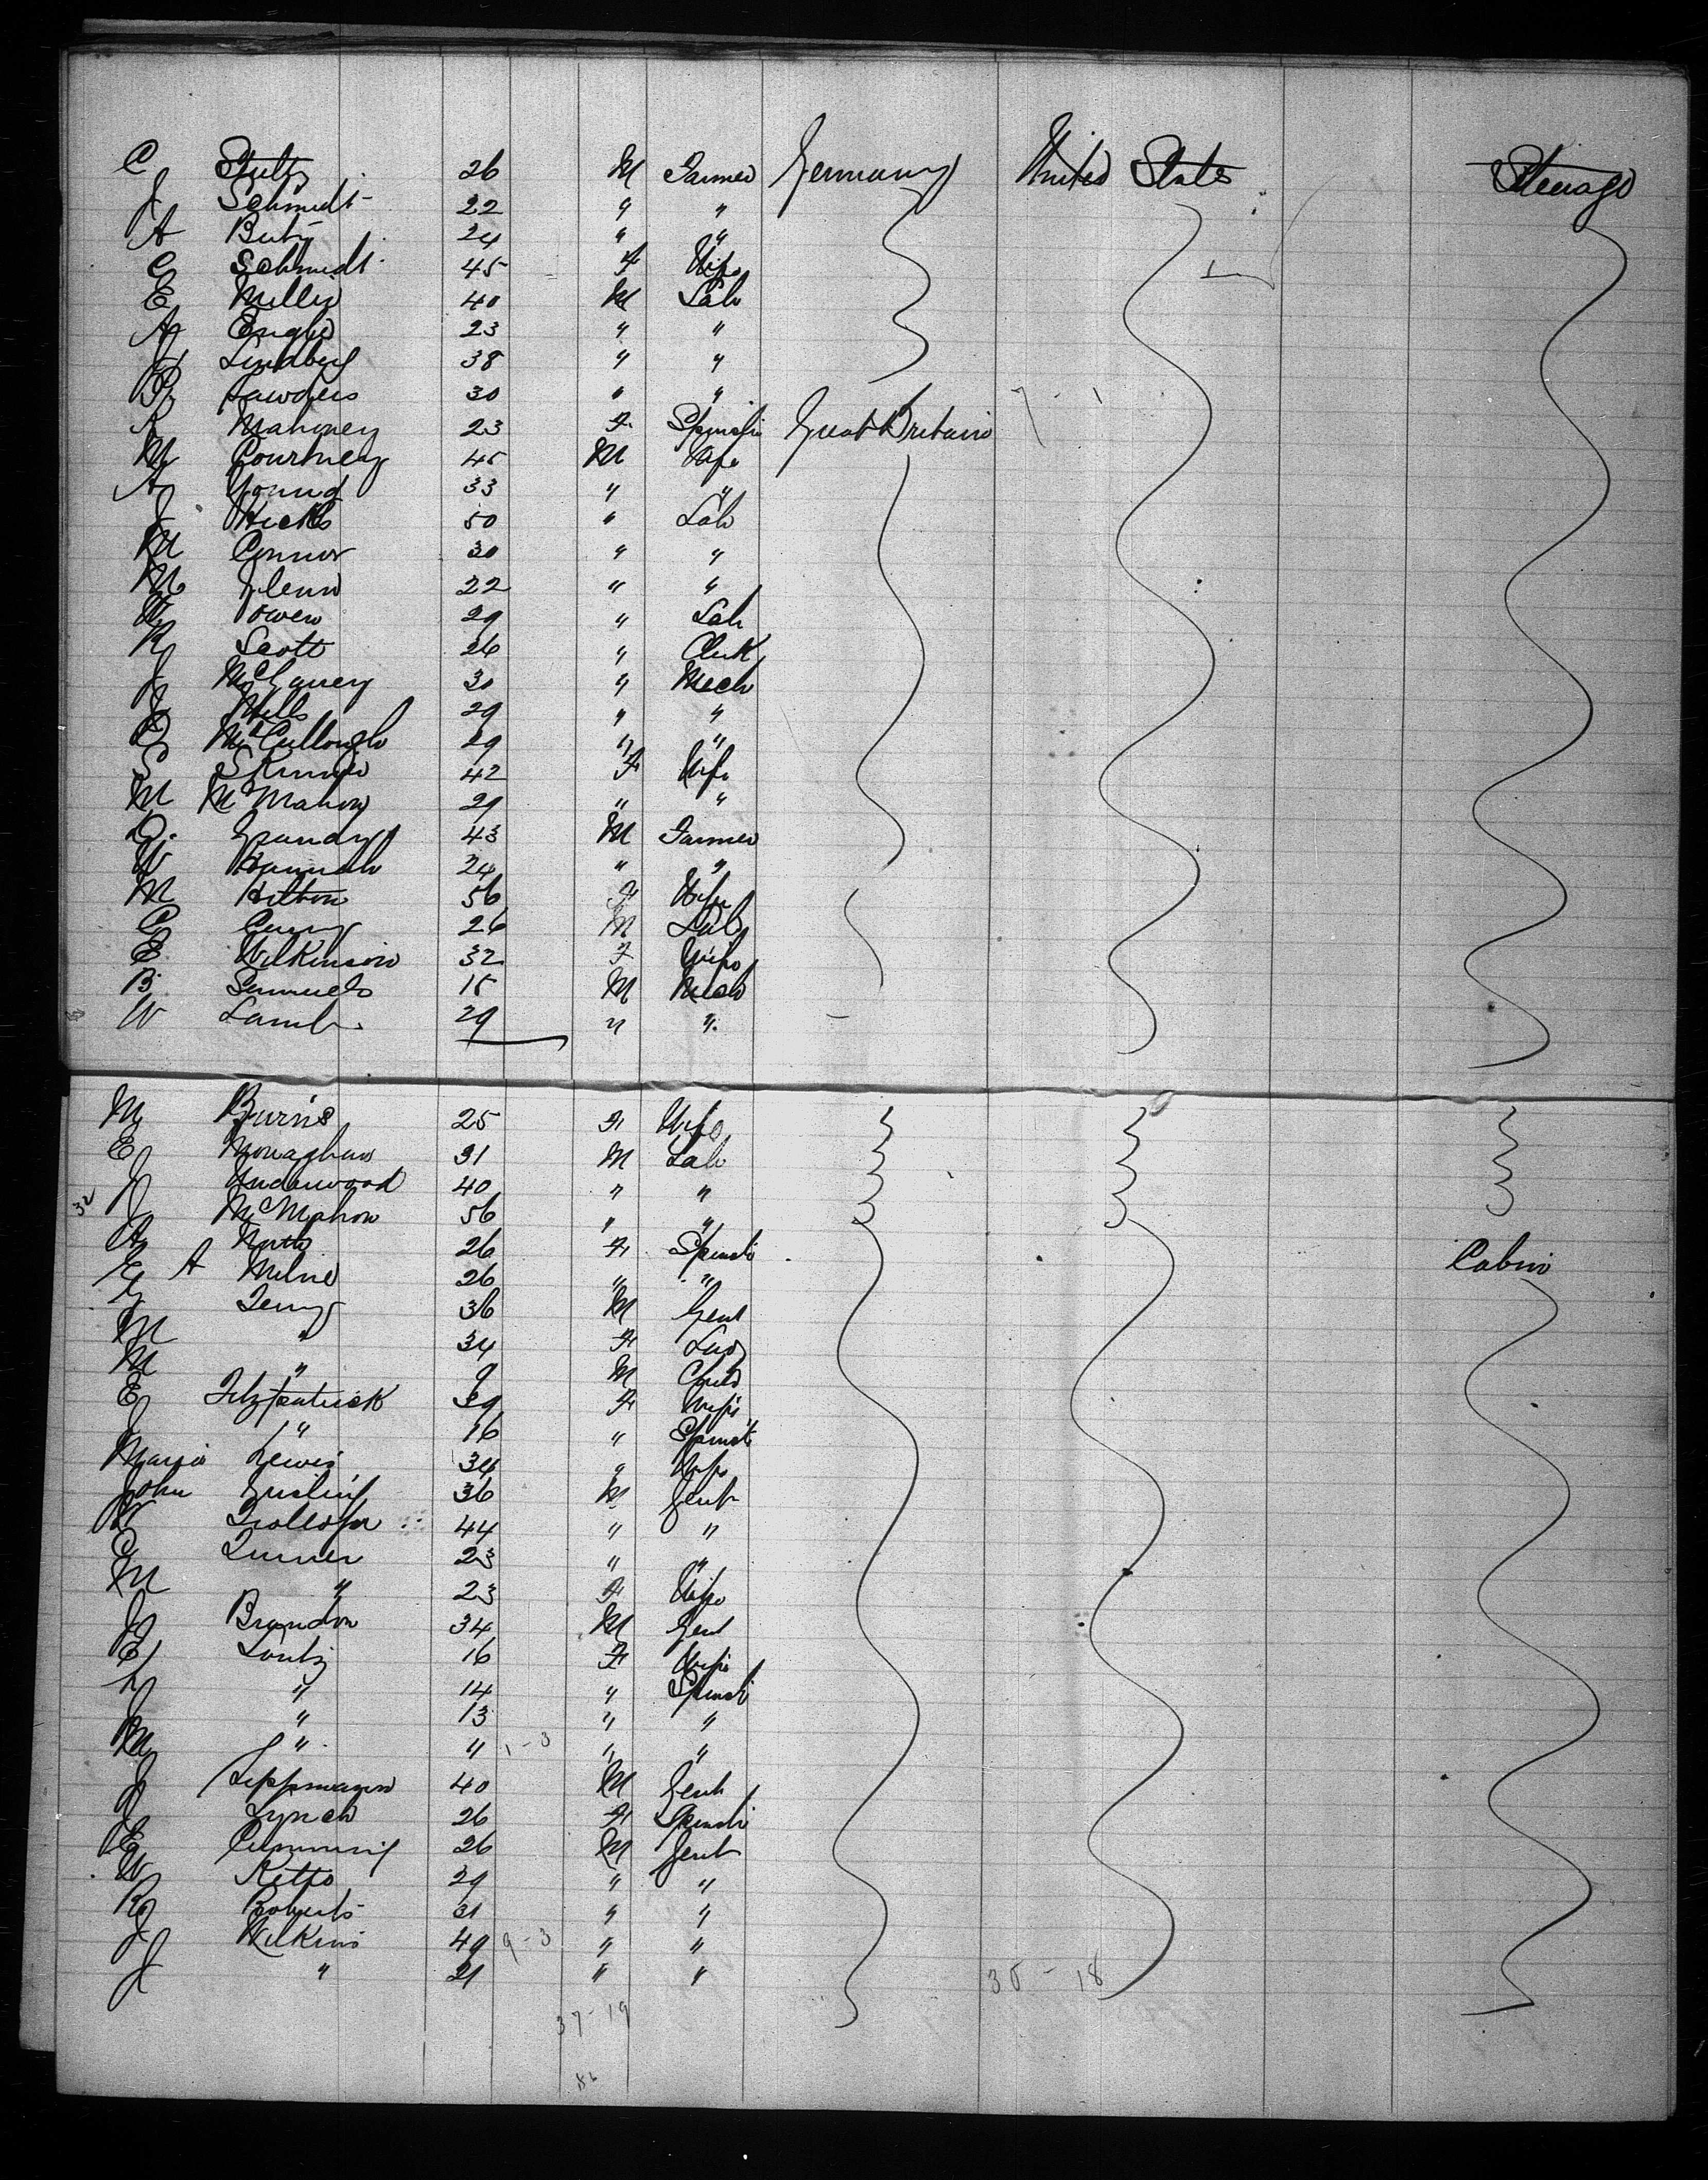 C Stultz 26 M Farmer Germany United States Steerage
J Schmidt 22 " "
A Butz 24 " "
C Schmidt 45 F Wife
E Miller 40 M Lab
A Engle 23 " "
J Lindberg 38 " "
P Sawders 30 " "
K Mahoney 23 F. Spinster Great Britain
M Courtney 45 M Wife
A Young 33 " "
J Hicks 50 " Lab
M Connor 30 " "
M Glenn 22 " "
W Powen 29 " Lab
R Scott 26 " Clerk
J 30 " Mech
J Mills 29 " "
D McCullough 29 " "
S Skinner 42 F Wife
M McMahon 29 " "
G. Grundy 43 M Farmer
W Hannah 24 " "
M Hilton 56 F Wife
C Curry 26 M Lab
E Wilkinson 32 F Wife
B. Samuels 15 M Mech
W Lamb. 29 " ".
M Burns 25 F Wife
E Monaghan 31 M Lab
J Underwood 40 " "
32 J McMahon 56 " "
A North 26 F Spinster Cabin
E A Milne 26 " "
G Terry 36 M Gent
M " 34 F Lady
M " 9 M Child
E Fitzpatrick 39 F Wife
J " 16 " Spinster
Maria Lewis 34 " Wife
John Gosling 36 M Gent
W Trollope 44 " "
C Turner 23 " "
M " 23 F Wife
J Brandon 34 M Gent
E Lontz 16 F Wife
L " 14 " Spinster
J " 13 " "
M " 11 1-3 " "
J Lippmann 40 M Gent
J Lynch 26 F Spinster
E Cumming 26 M Gent
W Kitto 29 " "
R Roberts 31 " "
J Wilkins 49 9-3 " "
J " 21 " " 35-18
37-19